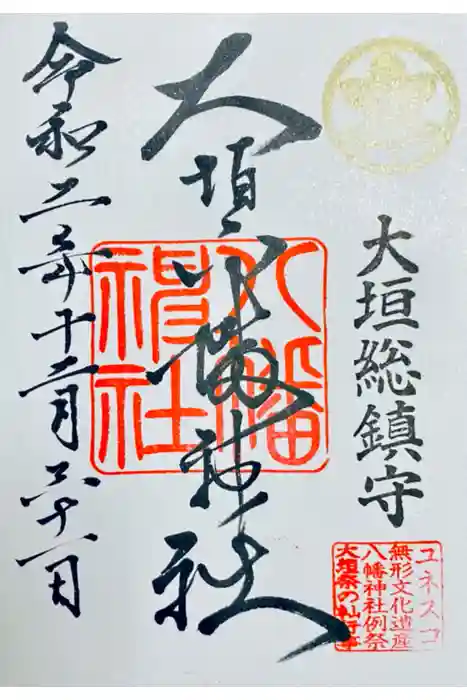 大垣総鎮守
ユネスコ
無形文化遺産
八幡神社例祭
大垣祭の軕行事
大垣八幡神社
八幡
神社
令和二年十二月三十一日